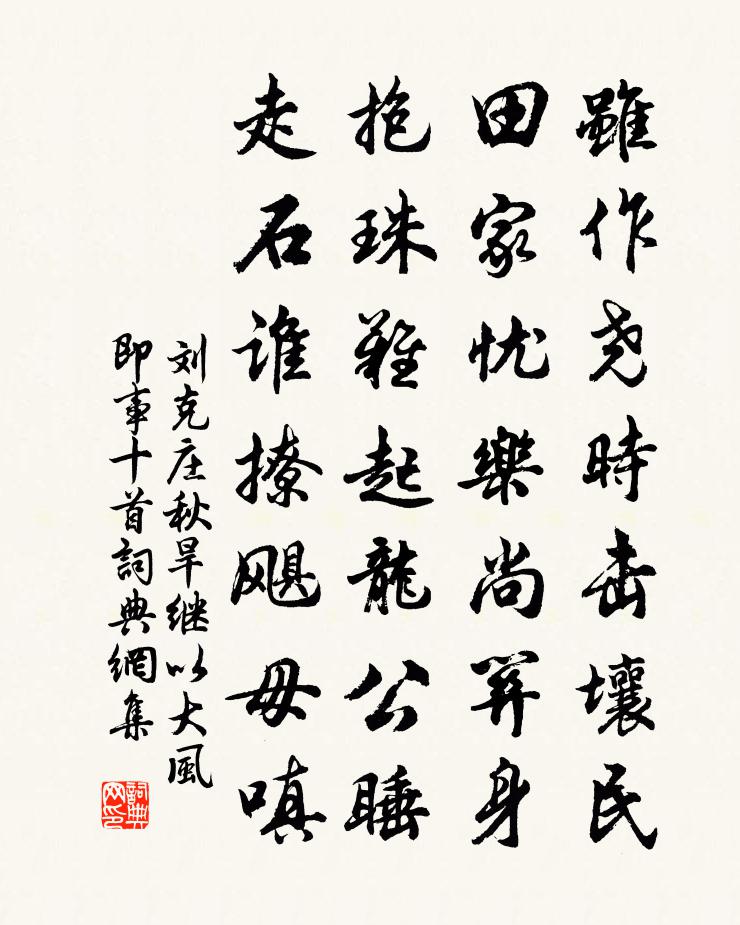 雖作堯時击壤民
田家忧樂尚関身
抱珠難起龍公睡
走石誰撩飓母嗔
刘克庄秋旱继以大風
即事十首詞典網集
詞典网印